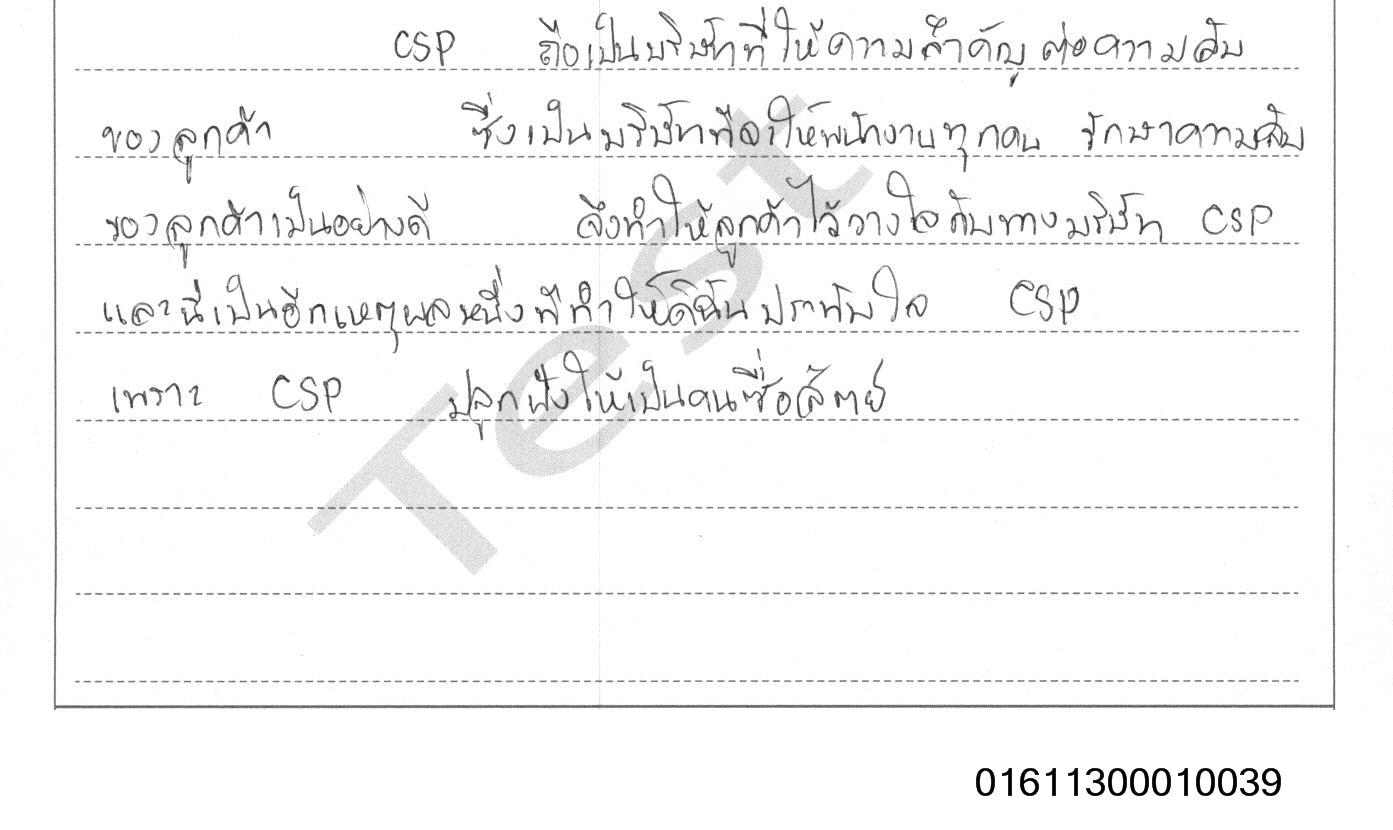 CSP ถือเป็นบริษัทที่ให้ความสำคัญต่อความลับ
ของลูกค้า ซึ่งเป็นบริษัทที่จะให้พนักงานทุกคน รักษาความลับ
ของลูกค้าเป็นอย่างดี จึงทำให้ลูกค้าไว้วางใจกับทางบริษัท CSP
และนี่เป็นอีกเหตุผลหนึ่งที่ทำให้ดิฉันประทับใจ CSP
เพราะ CSP ปลูกฝังให้เป็นคนซื่อสัตย์
Test
01611300010039